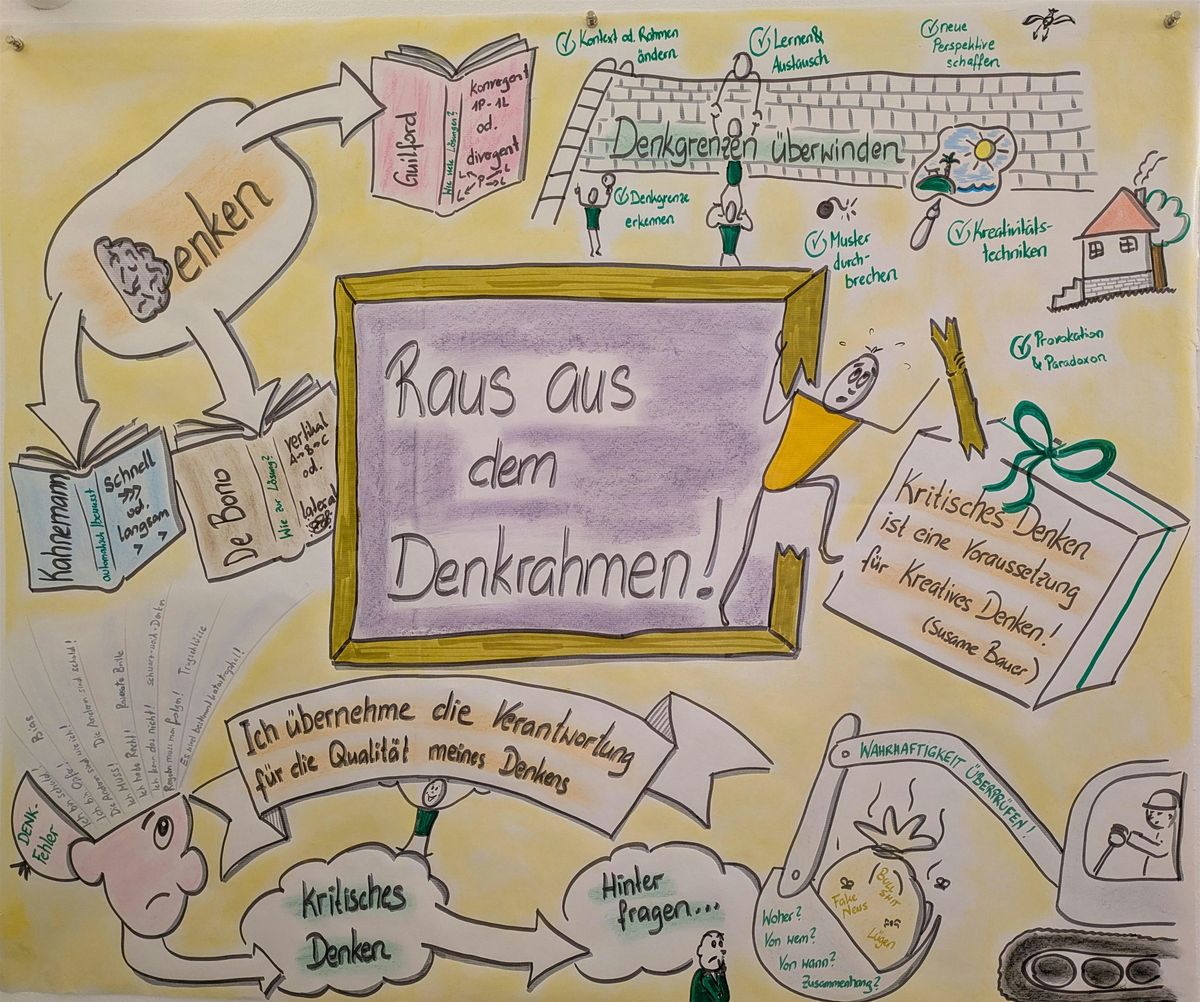 Denken
Guilford
Wie viele Lösungen?
Konvergent
1P - 1L
od.
divergent
L L
P → L
L
Kontext od. Rahmen
ändern
Lernen &
Austausch
neue
Perspektive
schaffen
Denkgrenzen überwinden
Denkgrenze
erkennen
Muster
durch-
brechen
Kreativitäts-
techniken
Provokation
& Paradoxon
Kahnemann
automatisch/bewusst
Schnell
od.
langsam
De Bono
Wie zur Lösung?
vertikal
A → B → C
od.
lateral
Raus aus
dem
Denkrahmen!
Kritisches Denken
ist eine Voraussetzung
für Kreatives Denken!
(Susanne Bauer)
Bias
Ich bin schuld!
Ich bin Opfer!
Die Anderen sind schuld!
Die MUSS!
Rosarote Brille
Ich habe Recht!
Ich kann das nicht!
schwarz-und-Denken
Regeln muss man folgen!
Trugschlüsse
DENK-
Fehler
Ich übernehme die Verantwortung
für die Qualität meines Denkens
Kritisches
Denken
Hinter
fragen...
WAHRHAFTIGKEIT ÜBERPRÜFEN!
Fake
News
Bull
shit
Lügen
Woher?
Von wem?
Von wann?
Zusammenhang?